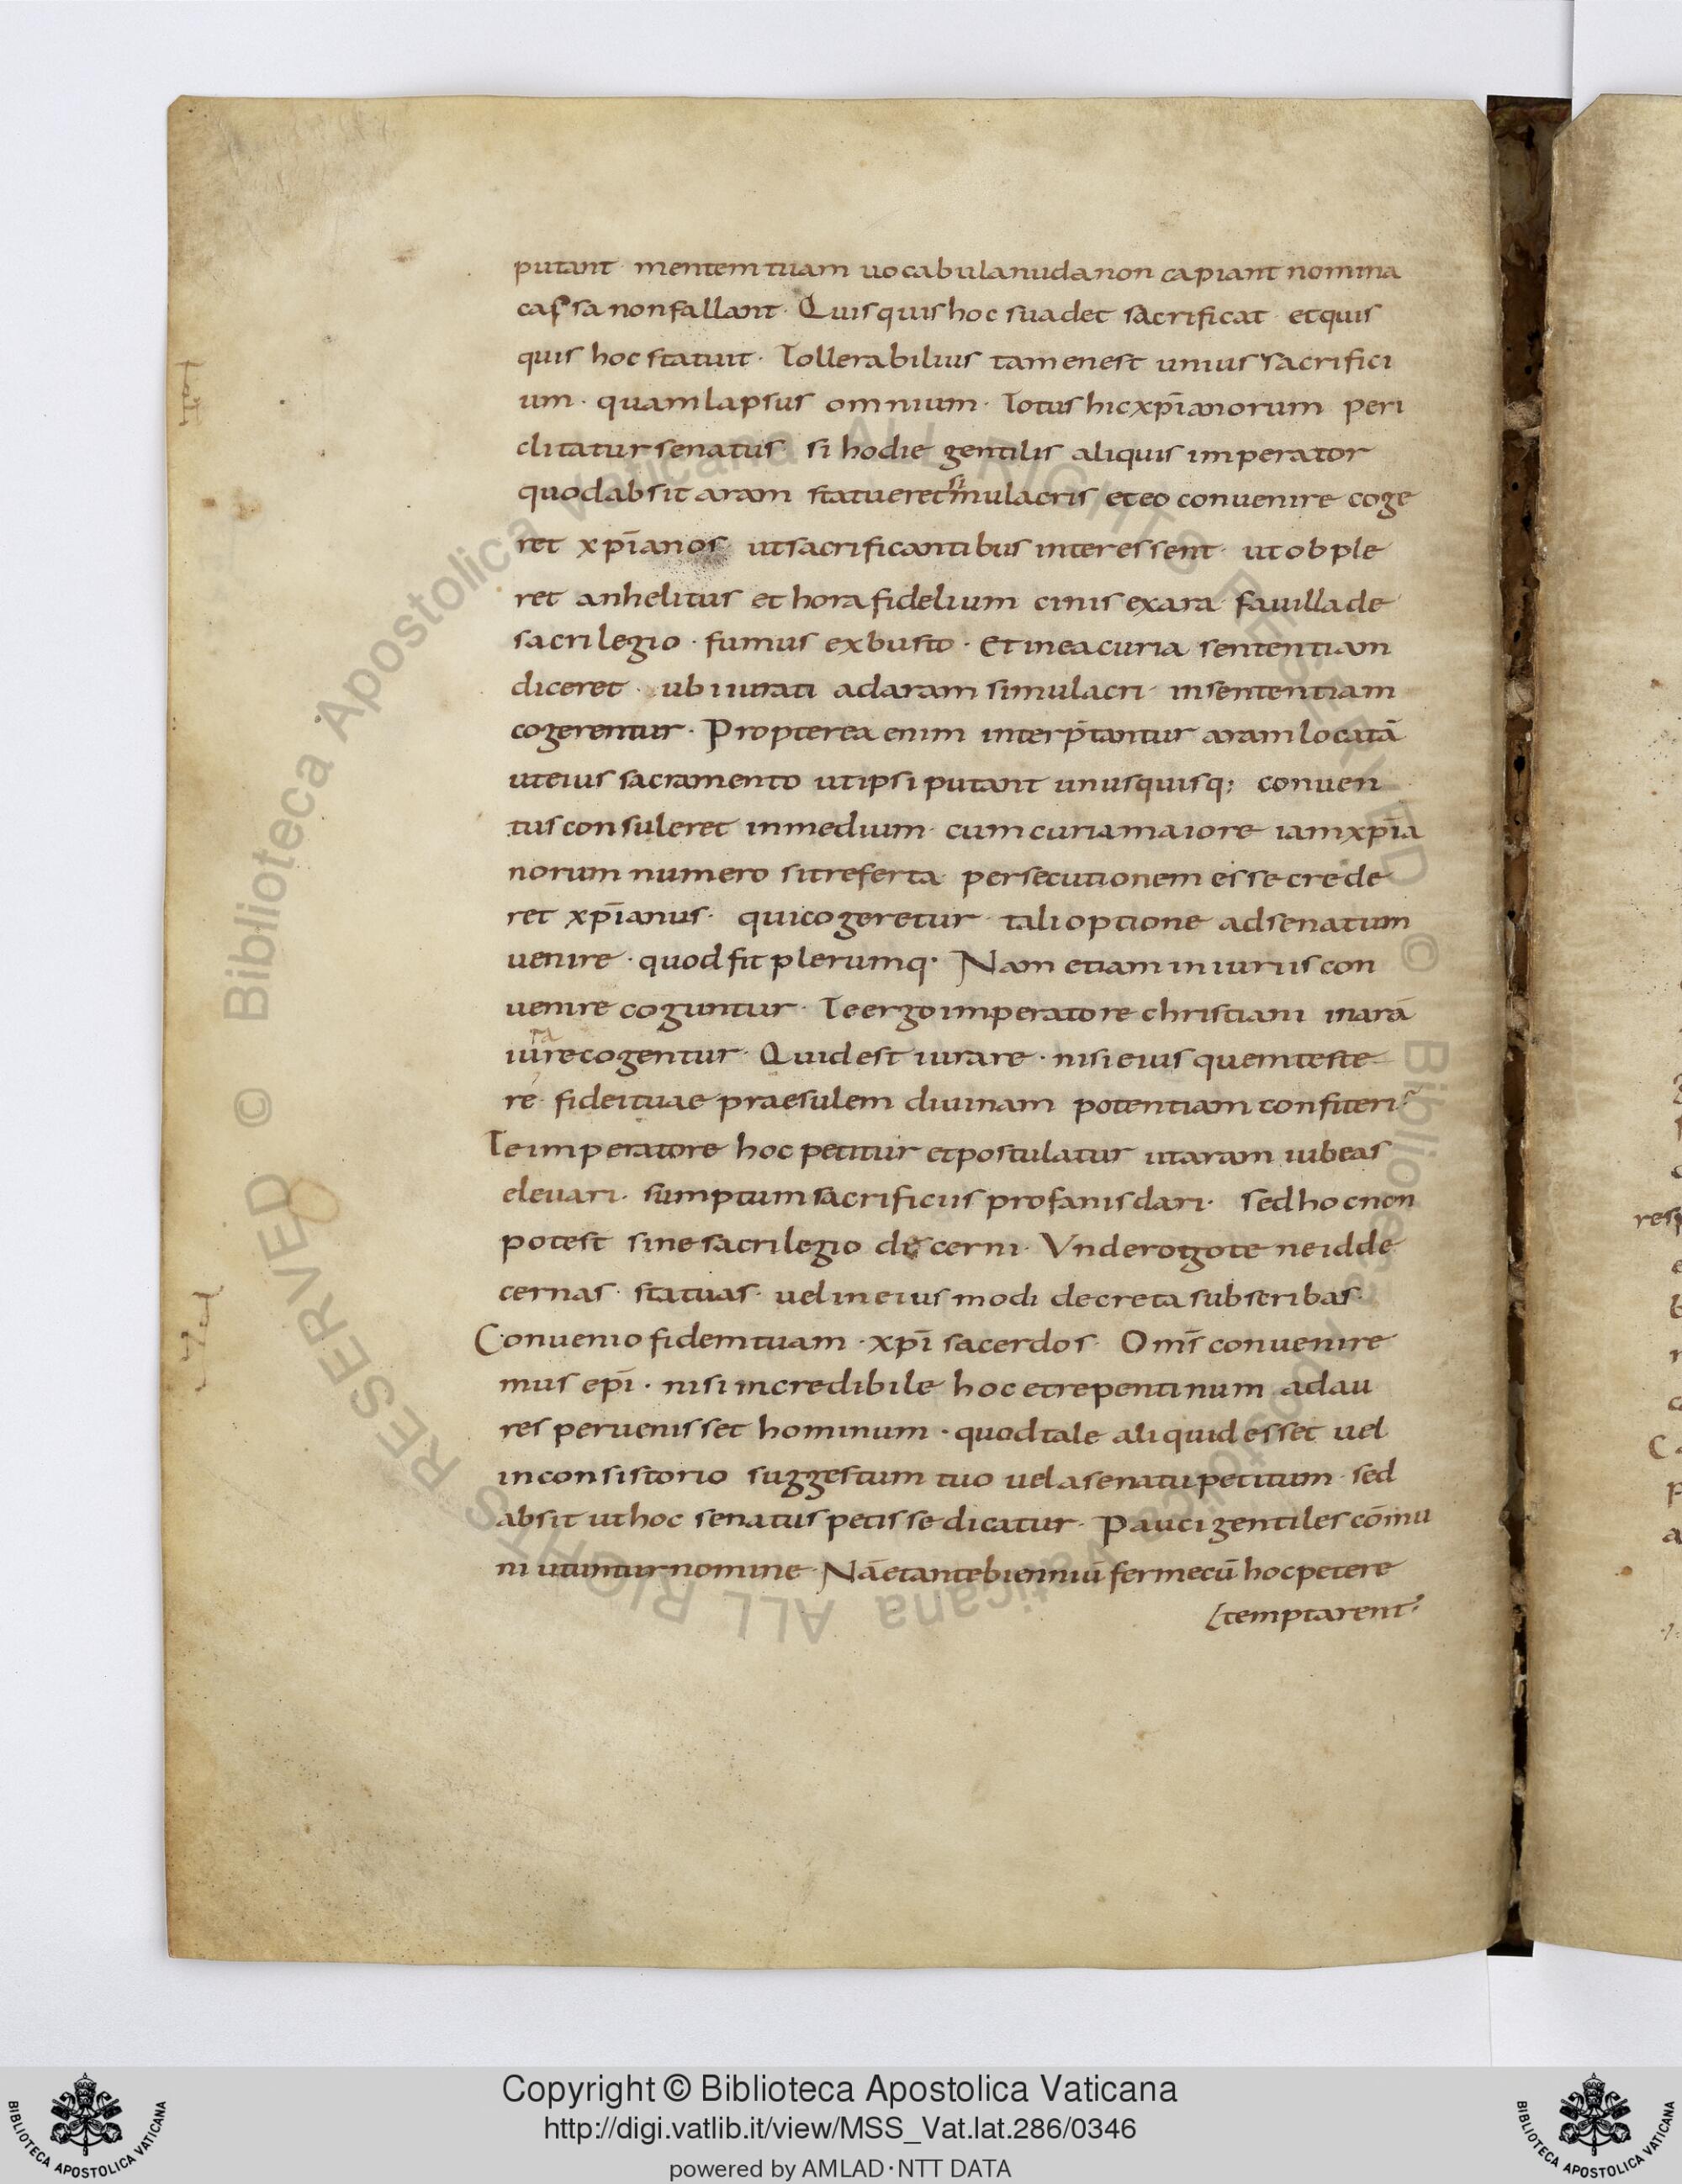 putant · mentem tuam uocabula nuda non capiant nomina
cassa non fallant · Quisquis hoc suadet sacrificat · et quis
quis hoc statuit · Tollerabilius tamen est unius sacrifici
um · quam lapsus omnium · Totus hic xp̄ianorum peri
clitatur senatus · si hodie gentilis aliquis imperator
quod absit aram statueret simulacris et eo conuenire coge
ret xp̄ianos · ut sacrificantibus interessent · ut obple
ret anhelitus et hora fidelium cinis ex ara fauilla de
sacrilegio · fumus ex busto · Et in ea curia sententiam
diceret · ubi iurati ad aram simulacri · in sententiam
cogerentur · Propterea enim interp̄tantur aram locatā
ut eius sacramento ut ipsi putant unusquisq; conuen
tus consuleret in medium · cum curia maiore iam xp̄ia
norum numero sit referta · persecutionem esse crede
ret xp̄ianus · qui cogeretur tali optione ad senatum
uenire · quod fit plerumq· Nam etiam iniuriis con
uenire coguntur · Te ergo imperatore christiani in arā
iurare cogentur · Quid est iurare · nisi eius quem teste
re · fidei tuae praesulem diuinam potentiam confiteri
Te imperatore hoc petitur et postulatur ut aram iubeas
eleuari · sumptum sacrificiis profanis dari · sed hoc non
potest sine sacrilegio decerni · Vnde rogo te ne id de
cernas · statuas · uel in eiusmodi decreta subscribas ·
Conuenio fidem tuam · xp̄i sacerdos · Om̄s conuenire
mus ep̄i · nisi incredibile hoc et repentinum ad au
res peruenisset hominum · quod tale aliquid esset uel
in consistorio suggestum tuo uel a senatu petitum · sed
absit ut hoc senatus petisse dicatur · Pauci gentiles cōmu
ni utuntur nomine · Nā et ante bienniū ferme cū hoc petere
temptarent
resp
Copyright © Biblioteca Apostolica Vaticana
http://digi.vatlib.it/view/MSS_Vat.lat.286/0346
powered by AMLAD·NTT DATA
BIBLIOTECA APOSTOLICA VATICANA
BIBLIOTECA APOSTOLICA VATICANA
© Biblioteca Apostolica Vaticana ALL RIGHTS RESERVED © Biblioteca Apostolica Vaticana ALL RIGHTS RESERVED